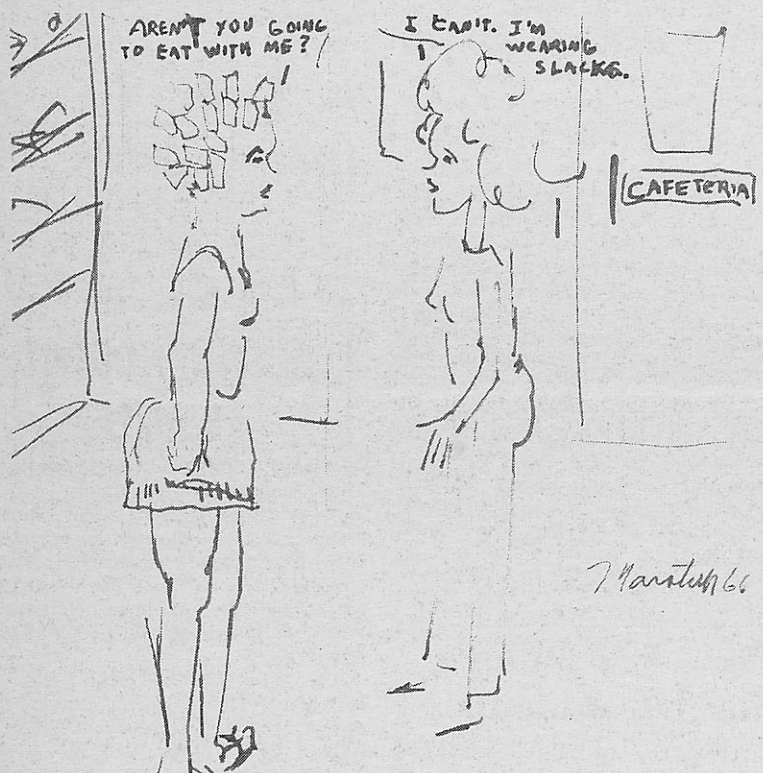 AREN'T YOU GOING
TO EAT WITH ME?
I CAN'T. I'M
WEARING
SLACKS.
CAFETERIA